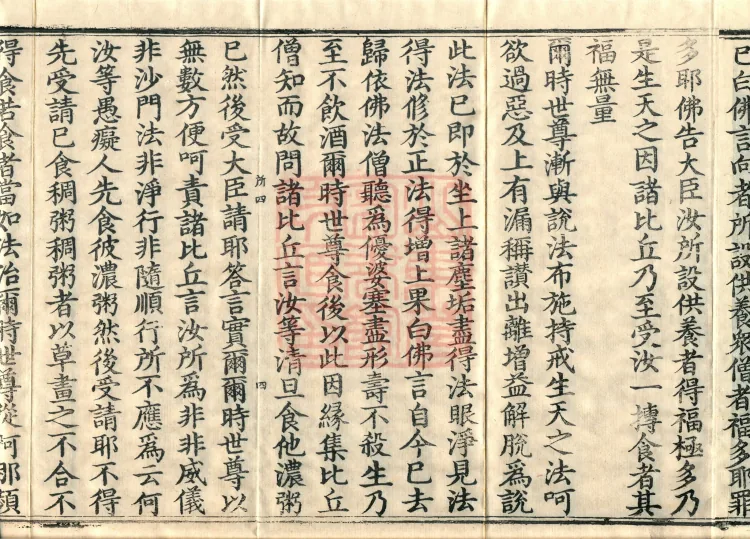 已白佛言向者所設供養衆僧者福多耶罪
多耶佛告大臣汝所設供養者得福極多乃
是生天之因諸比丘乃至受汝一摶食者其
福無量
爾時世尊漸與說法布施持戒生天之法呵
欲過惡及上有漏稱讃出離增益解脫爲說
此法已即於坐上諸塵垢盡得法眼淨見法
得法修於正法得增上果白佛言自今已去
歸依佛法僧聽爲優婆塞盡形壽不殺生乃
至不飲酒爾時世尊食後以此因緣集比丘
僧知而故問諸比丘言汝等清旦食他濃粥
所四
四
已然後受大臣請耶答言實爾爾時世尊以
無數方便呵責諸比丘言汝所爲非非威儀
非沙門法非淨行非隨順行所不應爲云何
汝等愚癡人先食彼濃粥然後受請耶不得
先受請已食稠粥稠粥者以草畫之不合不
得食若食者當如法治爾時世尊從阿那頻